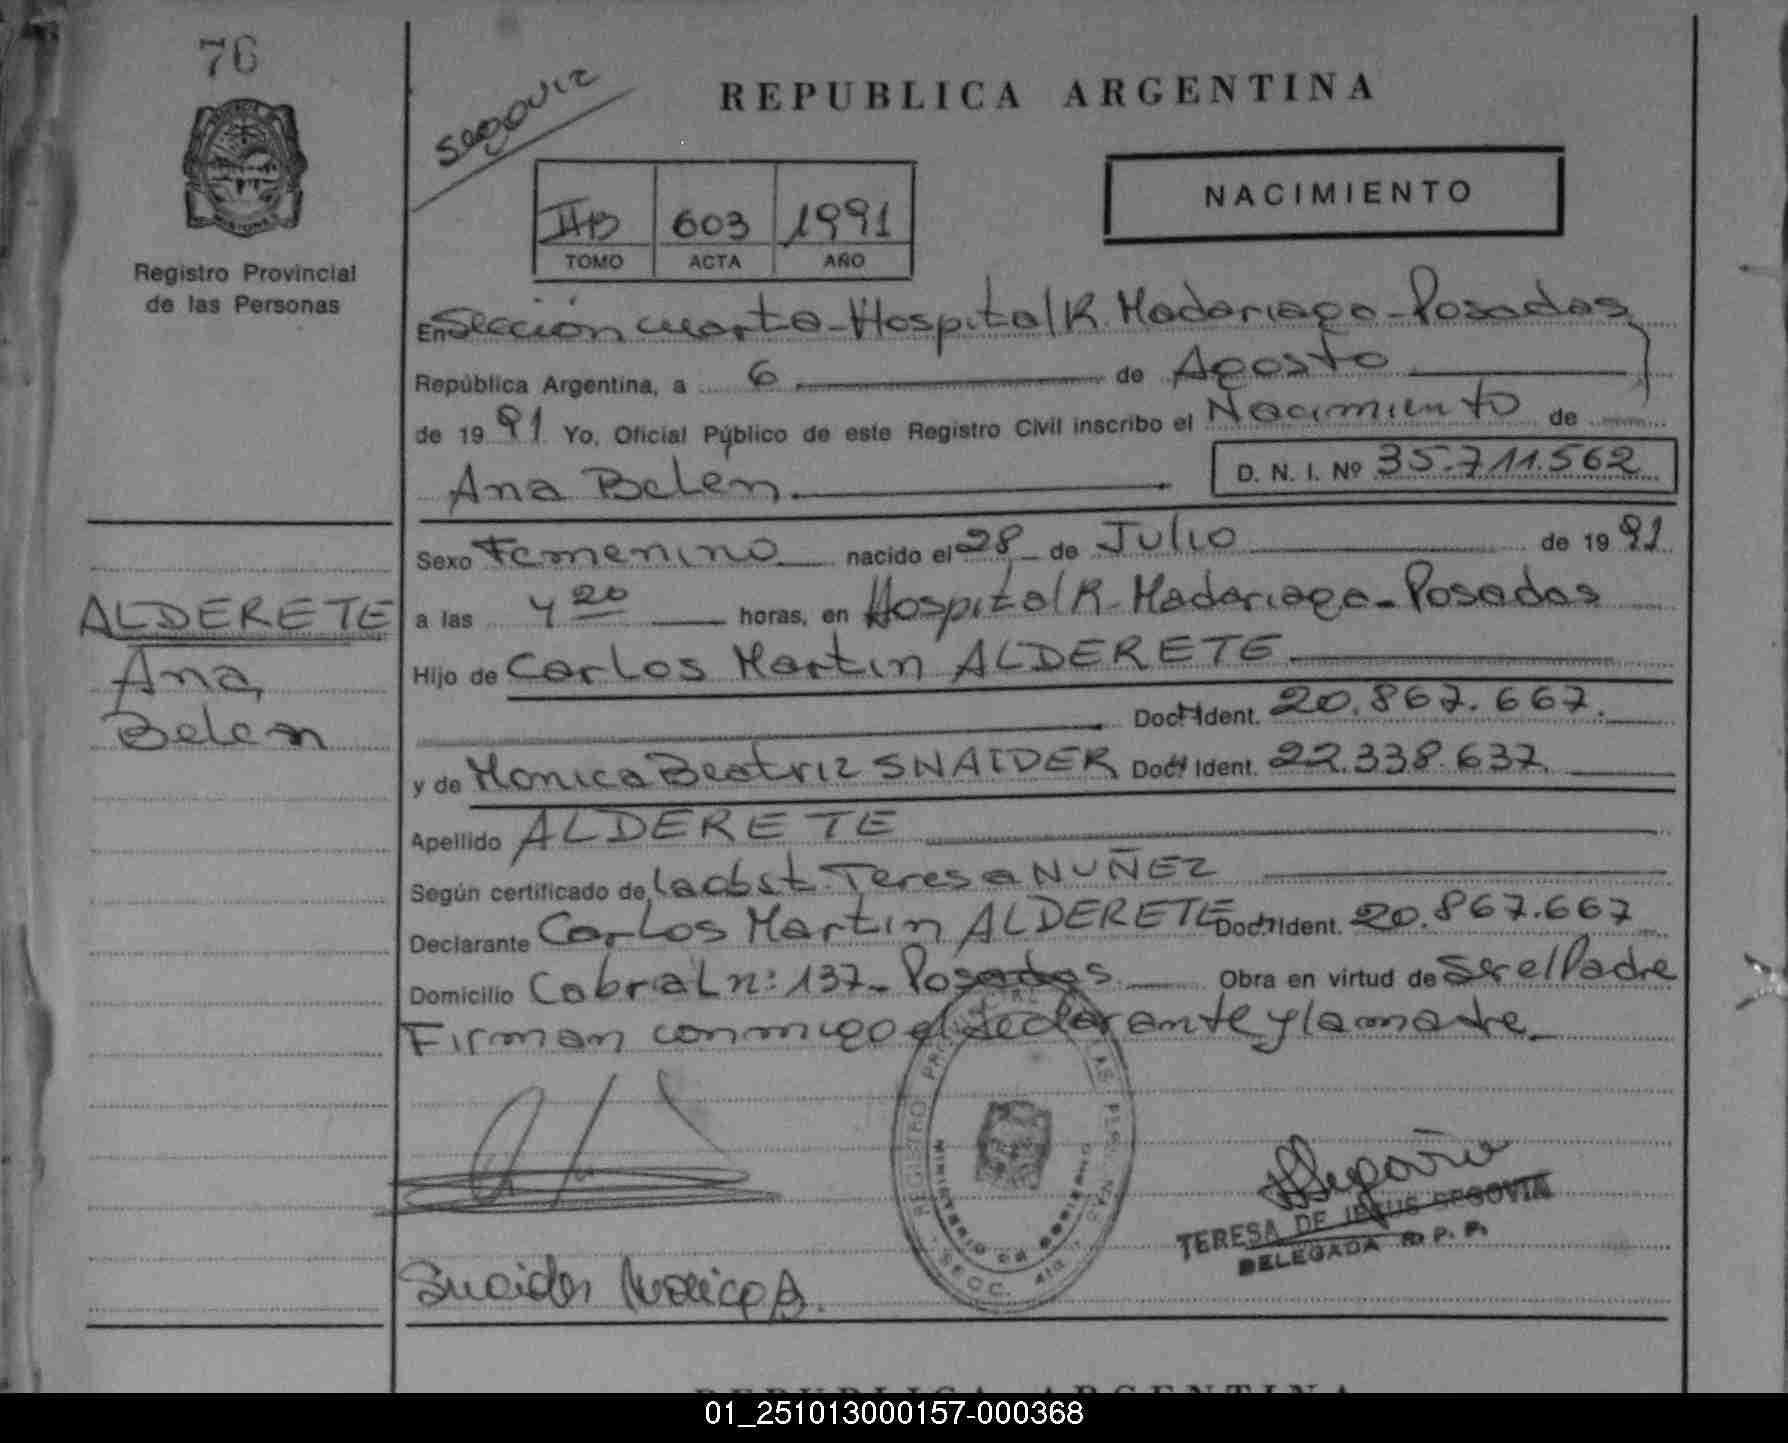 76
Segovia
REPUBLICA ARGENTINA
NACIMIENTO
II B 603 1991
TOMO ACTA AÑO
Registro Provincial
de las Personas
En Sección cuarta-Hospital R. Madariaga-Posadas
República Argentina, a 6 de Agosto
de 1991 Yo, Oficial Público de este Registro Civil inscribo el Nacimiento de
Ana Belen D. N. I. Nº 35.711.562
Sexo Femenino nacido el 28 de Julio de 1991
ALDERETE
Ana
Belen
a las 4 20 horas, en Hospital R. Madariaga-Posadas
Hijo de Carlos Martin ALDERETE
Doc. Ident. 20.867.667.
y de Monica Beatriz SNAIDER Doc. Ident. 22.338.637.
Apellido ALDERETE
Según certificado de la obst. Teresa NUÑEZ
Declarante Carlos Martin ALDERETE Doc. Ident. 20.867.667
Domicilio Cabral n: 137-Posadas Obra en virtud de Ser el Padre
Firman conmigo el declarante y la madre
REGISTRO PROVINCIAL DE LAS PERSONAS
MINISTERIO DE GOBIERNO
Segovia
TERESA DE JESUS SEGOVIA
DELEGADA R. P. P.
Snaider Monica B.
REPUBLICA ARGENTINA
01_251013000157-000368